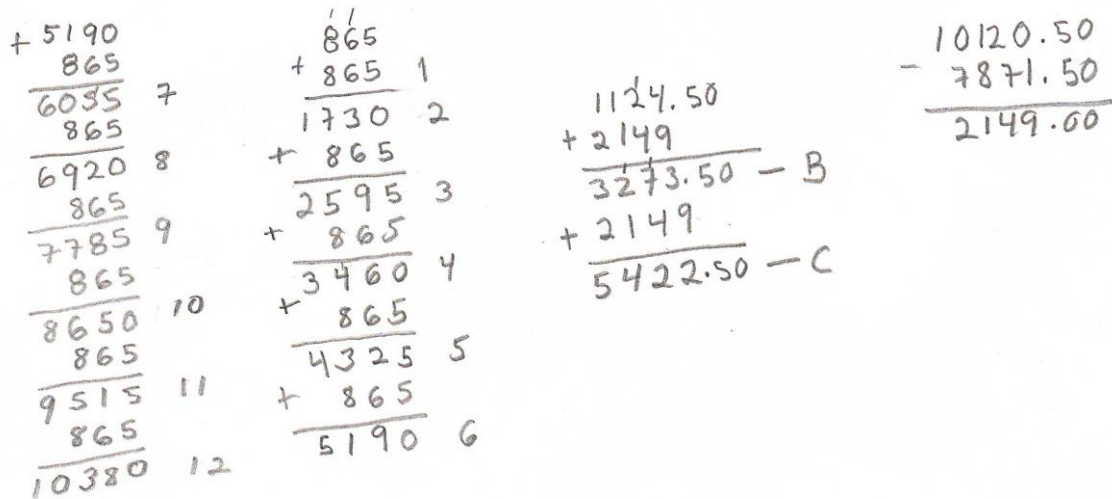 + 5190
865
6055 7
865
6920 8
865
7785 9
865
8650 10
865
9515 11
865
10380 12
1 1
865
+ 865 1
1730 2
+ 865
2595 3
+ 865
3460 4
+ 865
4325 5
+ 865
5190 6
1
1124.50
+ 2149
1 1
3273.50 - B
+ 2149
5422.50 - C
10120.50
- 7871.50
2149.00